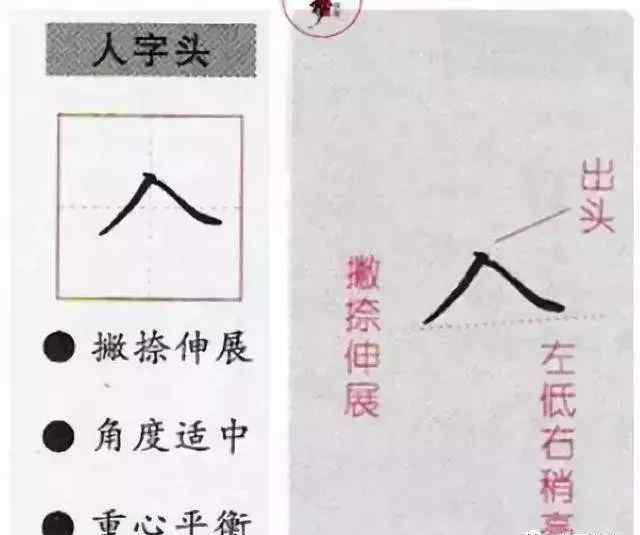 人字头
撇捺伸展
角度适中
重心平衡
出头
撇捺伸展
左低右稍高